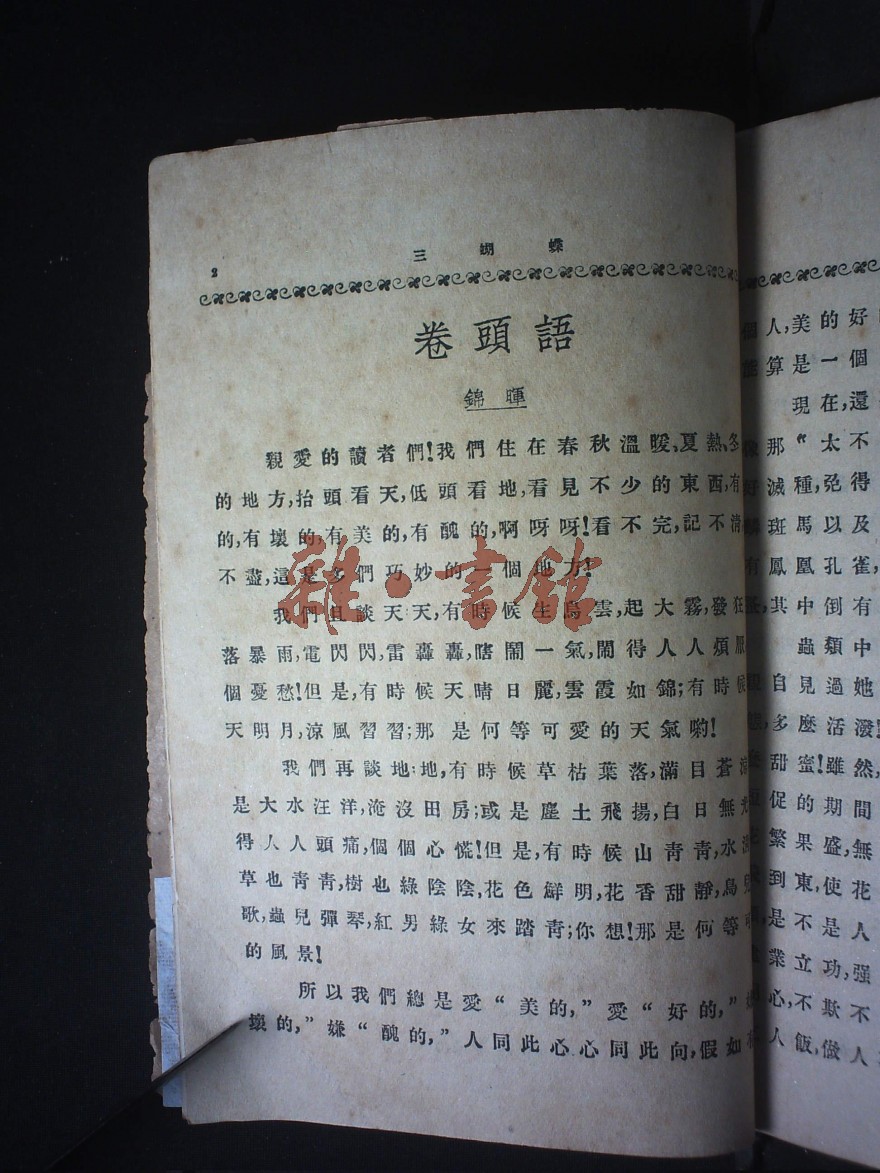 2
三蝴蝶
卷頭語
錦暉
親愛的讀者們!我們住在春秋溫暖,夏熱,冬
的地方,抬頭看天,低頭看地,看見不少的東西,有
的,有壞的,有美的,有醜的,啊呀呀!看不完,記不清
不盡,這是多們巧妙的一個地方!
我們且談天:天,有時候生烏雲,起大霧,發狂
落暴雨,電閃閃,雷轟轟,瞎鬧一氣,鬧得人人煩厭
個憂愁!但是,有時候天晴日麗,雲霞如錦;有時候
天明月,涼風習習;那是何等可愛的天氣喲!
我們再談地:地,有時候草枯葉落,滿目蒼涼
是大水汪洋,淹沒田房;或是塵土飛揚,白日無光
得人人頭痛,個個心慌!但是,有時候山靑靑,水
草也靑靑,樹也綠陰陰,花色鮮明,花香甜靜,鳥兒
歌,蟲兒彈琴,紅男綠女來踏靑;你想!那是何等
的風景!
所以我們總是愛“美的,”愛“好的,”
壞的,”嫌“醜的,”人同此心心同此向,假如
人,美的好
算是一個
現在,還
那“太不
滅種,免得
斑馬以及
有鳳凰孔雀,
其中倒有
蟲類中
自見過她
多麼活潑!
甜蜜!雖然,
促的期間
繁果盛,無
到東,使花
是不是人
業立功,强
心,不欺不
人飯,做人
雜·書館